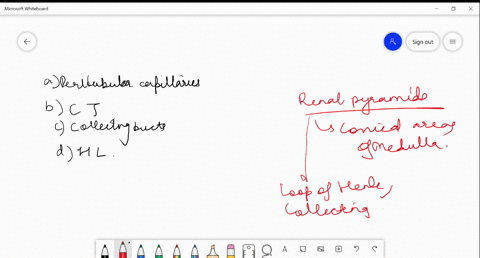 Microsoft Whiteboard
Sign out
a) Peritubular capillaries
b) C T
c) Collecting ducts
d) H L.
Renal pyramids
↳ conical areas
of medulla.
Loop of Henle,
Collecting